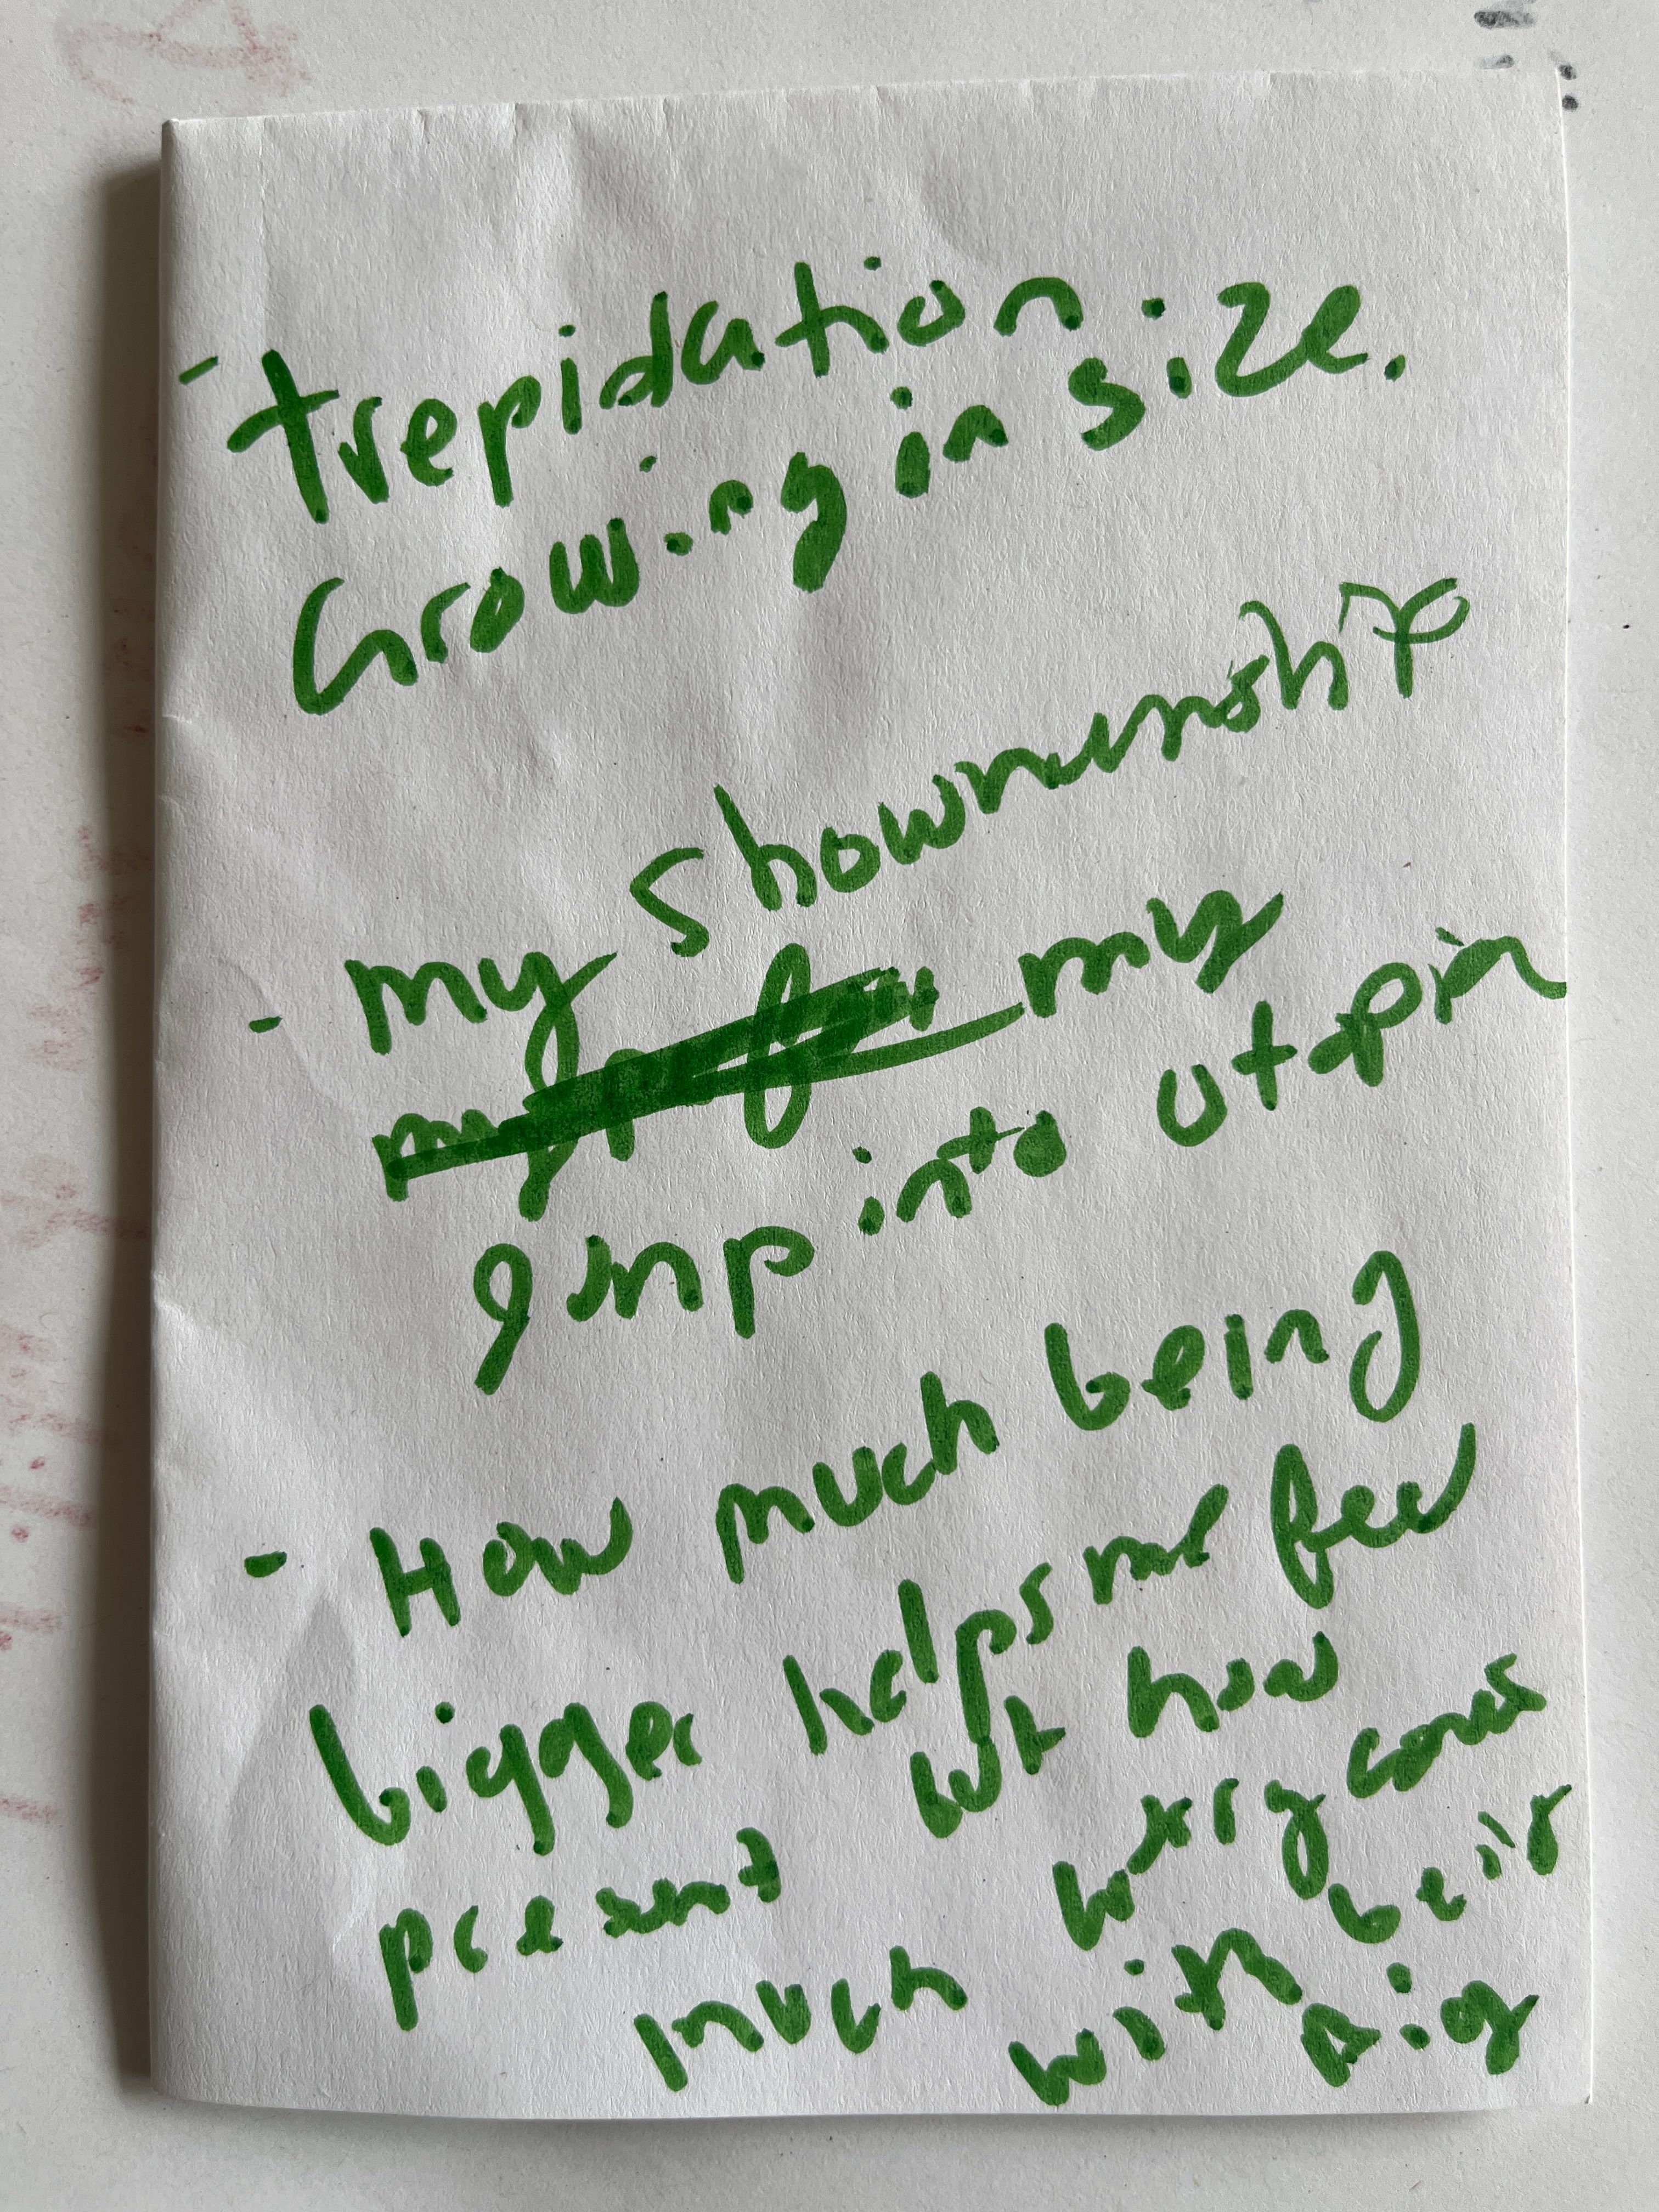 - trepidation
Growing in size.
- my showmanship
my
jump into utopia
- How much being
bigger helps me feel
present but how
much worry comes
with being
big